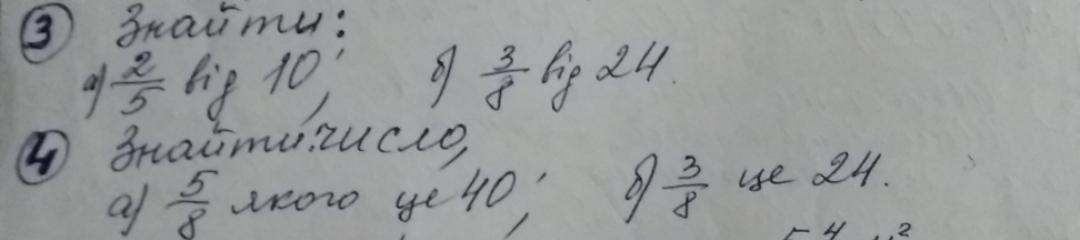 ③ Знайти:
а) 2/5 від 10; б) 3/8 від 24.
④ Знайти число,
а) 5/8 якого це 40; б) 3/8 це 24.